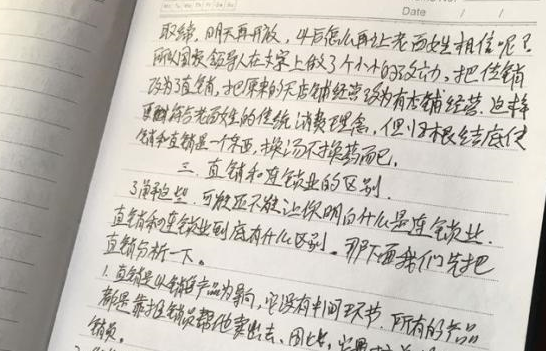 Date / /
取缔,明天再开放,以后怎么再让老百姓相信呢?
所以国家领导人在文字上做了3个小小的改动,把传销
改为了直销,把原来的无店铺经营改为有店铺经营.这样
更符合老百姓的传统消费理念,但归根结底传
销和直销是一个东西,换汤不换药而已.
三.直销和连锁业的区别.
了解这些.可能还不能让你明白什么是连锁业.
直销和连锁业到底有什么区别.那下面我们先把
直销分析一下。
1.直销是以销售产品为导向,它没有中间环节.所有的产品
都是靠推销员帮他卖出去、因此,它要
销员.